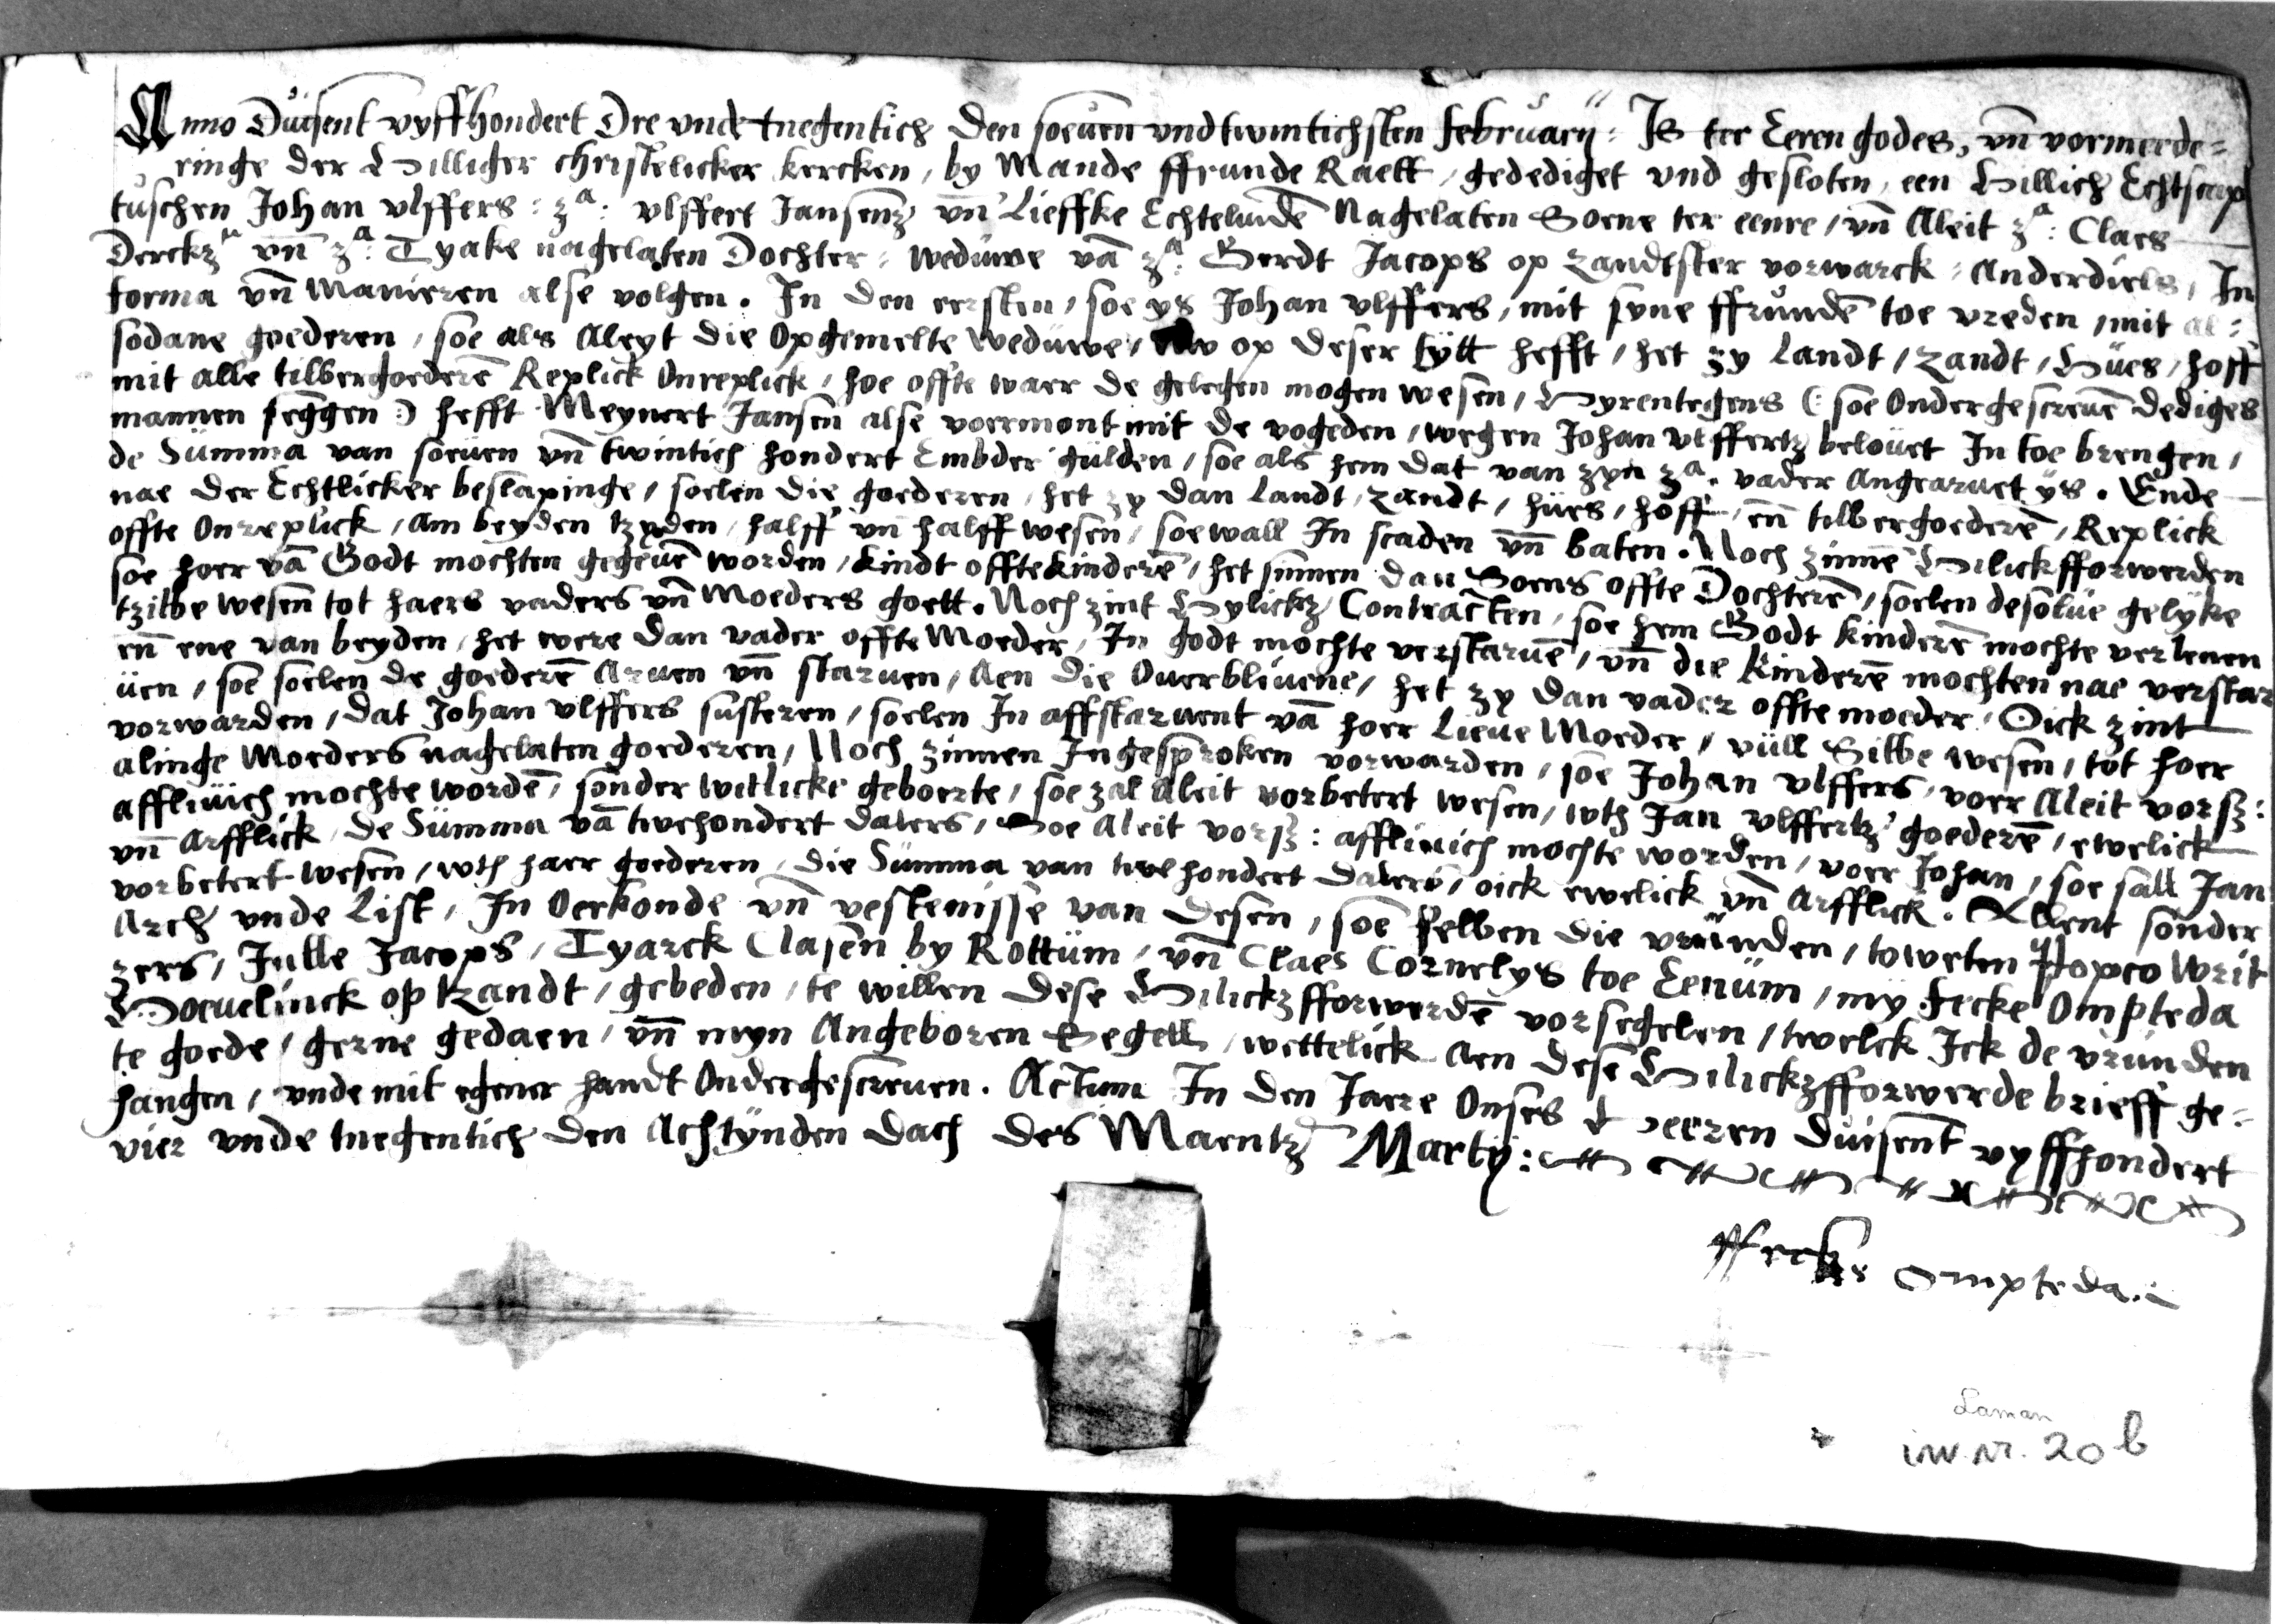 Anno Duisent vyffhondert Dre vnde tnegentich Den soeuen vnd twintichsten february: Is ter Eeren godes, vn̄ vormeerde=
ringe der Hilliger christelicker kercken, by Mande ffrunde Raett, gedediget vnd gesloten, een Hillich Echtscap
tuschen Johan vlffers: zᵃ: vlffert Jansenz vn̄ Lieffke Echteluidē Nagelaten Soene ter eenre, vn̄ Aleit zᵃ: Claes
Derckz vn̄ zᵃ: Tyake nagelaten Dochter, weduwe vā zᵃ: Gerdt Jacops op zandtster vorwarck, Anderdiels, In
forma vn̄ Manieren alse volgen. In den eersten, soe ys Johan vlffers, mit syne ffrundē toe vreden, mit al=
sodane goederen, soe als Aleyt die Opgemelte weduwe, nw op deser tytt hefft, het zy Landt, zandt, Hues, hoff
mit alle tilbergoederē Replick Onreplick, hoe offte waer de gelegen mogen wesen, Hyrentegens (: soe Ondergescreuē dediges
mannen seggen :) hefft Meynert Jansen alse voermont mit de vogeden, wegen Johan vlffertz belouet In toe brengen,
de Summa van soeuen vn̄ twintich hondert Embder gulden, soe als hem dat van zyn zᵃ. vader Angearuet ys. Ende
nae der Echtlicker beslapinge, soelen die goederen, het zy dan landt, zandt, hues, hoff, en̄ tilbergoederē, Replick
offte Onreplick, Am beyden tzyden, halff vn̄ halff wesen, soe wall In scaden vn̄ baten. Noch zinnē Hilickfforwerden
soe hoer vā Godt mochten gegeuē worden, kindt offte kinderē, het sinnen dan Soens offte Dochterē, soelen desolue gelyke
tzilbe wesen tot haers vaders vn̄ Moeders goett. Noch zint Hylickz Contracten, soe hem Godt kinderē mochte verlenen
en̄ ene van beyden, het were dan vader offte Moeder, In godt mochte verstaruē, vn̄ die kinderē mochten nae verstar
uen, soe soelen de goederē Aruen vn̄ staruen, Aen die Ouerbliuene, het zy dan vader offte moeder. Oick zint
vorwarden, dat Johan vlffers susteren, soelen In affstaruent vā hoer Lieue Moeder, vull Silbe wesen, tot hoer
alinge Moeders nagelaten goederen, Noch zinnen Ingesproken vorwarden, soe Johan vlffers, voer Aleit vorsz:
affliuich mochte wordē, sonder witlicke geboerte, soe zal Aleit vorbetert wesen, wth Jan vlffertz goederē, ewelick
vn̄ Arfflick, de Summa vā twehondert dalers, Soe Aleit vorsz: affliuich mochte worden, voer Johan, soe sall Jan
vorbetert wesen, wth haer goederen, die Summa van twe hondert dalers, oick ewelick vn̄ Arfflick. Allent sonder
Arch vnde List, In Oerkonde vn̄ vestenisse van desen, soe hebben die vrunden, toweten Popeo Writ
zers, Julle Jacops, Tyarck Clasen by Rottum, vn̄ Claes Cornelys toe Eenum, my Fecke Ompteda
Hoeuelinck op tzandt, gebeden, te willen dese Hilickzfforwerdē vorsegelen, twelck Ick de vrunden
te goede, gerne gedaen, vn̄ myn Angeboren Segell, wettelick Aen dese Hilickzfforwerde brieff ge=
hangen, vnde mit egener handt Ondergescreuen. Actum In den Jaere Onses Heeren Duisent vyffhondert
vier vnde tnegentich den Achtynden dach des Maentz Martij:
ffeck Ompteda
Laman
inv. nr. 20 b